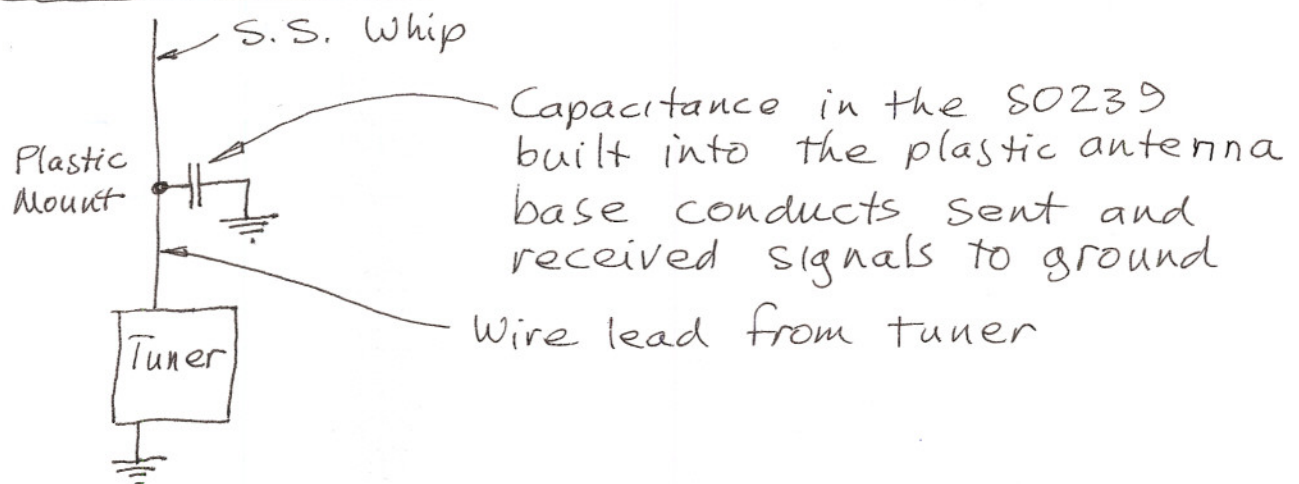 S.S. Whip
Capacitance in the SO239
built into the plastic antenna
base conducts sent and
received signals to ground
Plastic
Mount
Wire lead from tuner
Tuner